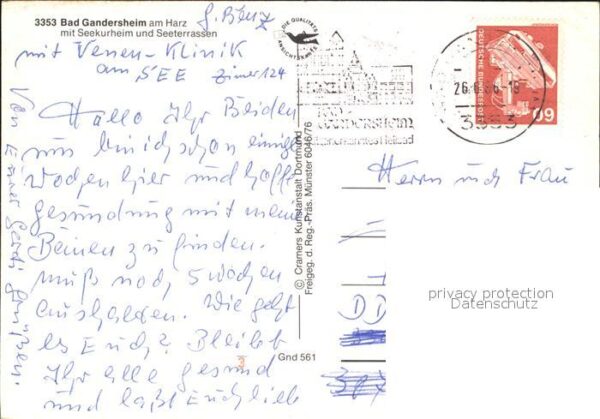 3353 Bad Gandersheim am Harz
mit Seekurheim und Seeterrassen
G. Benz
mit Venen-Klinik
am SEE Zimer 124
Hallo Ihr Beiden
nun bin ich schon einige
Wochen hier und hoffe
gesundung mit meine
Beinen zu finden.
muß noch 5 Wochen
aushalten. Wie geht
es Euch? Bleibt
Ihr alle gesund
und laßt Euch lieb
Von Eurer
DIE QUALITÄTS
ANSICHTSKARTE
GANDERSHEIM
3353
DEUTSCHE BUNDESPOST
60
Herrn und Frau
© Cramers Kunstanstalt Dortmund
Freigeg. d. Reg.-Präs. Münster 6046/76
Gnd 561
privacy protection
Datenschutz